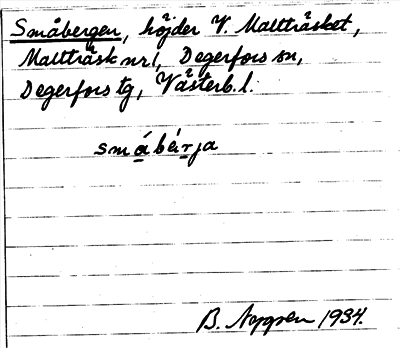 Småbergen, höjder V. Mallträsket,
Mallträsk nr 1, Degerfors sn,
Degerfors tg, Västerb. l.
småbárja
B. 1934.